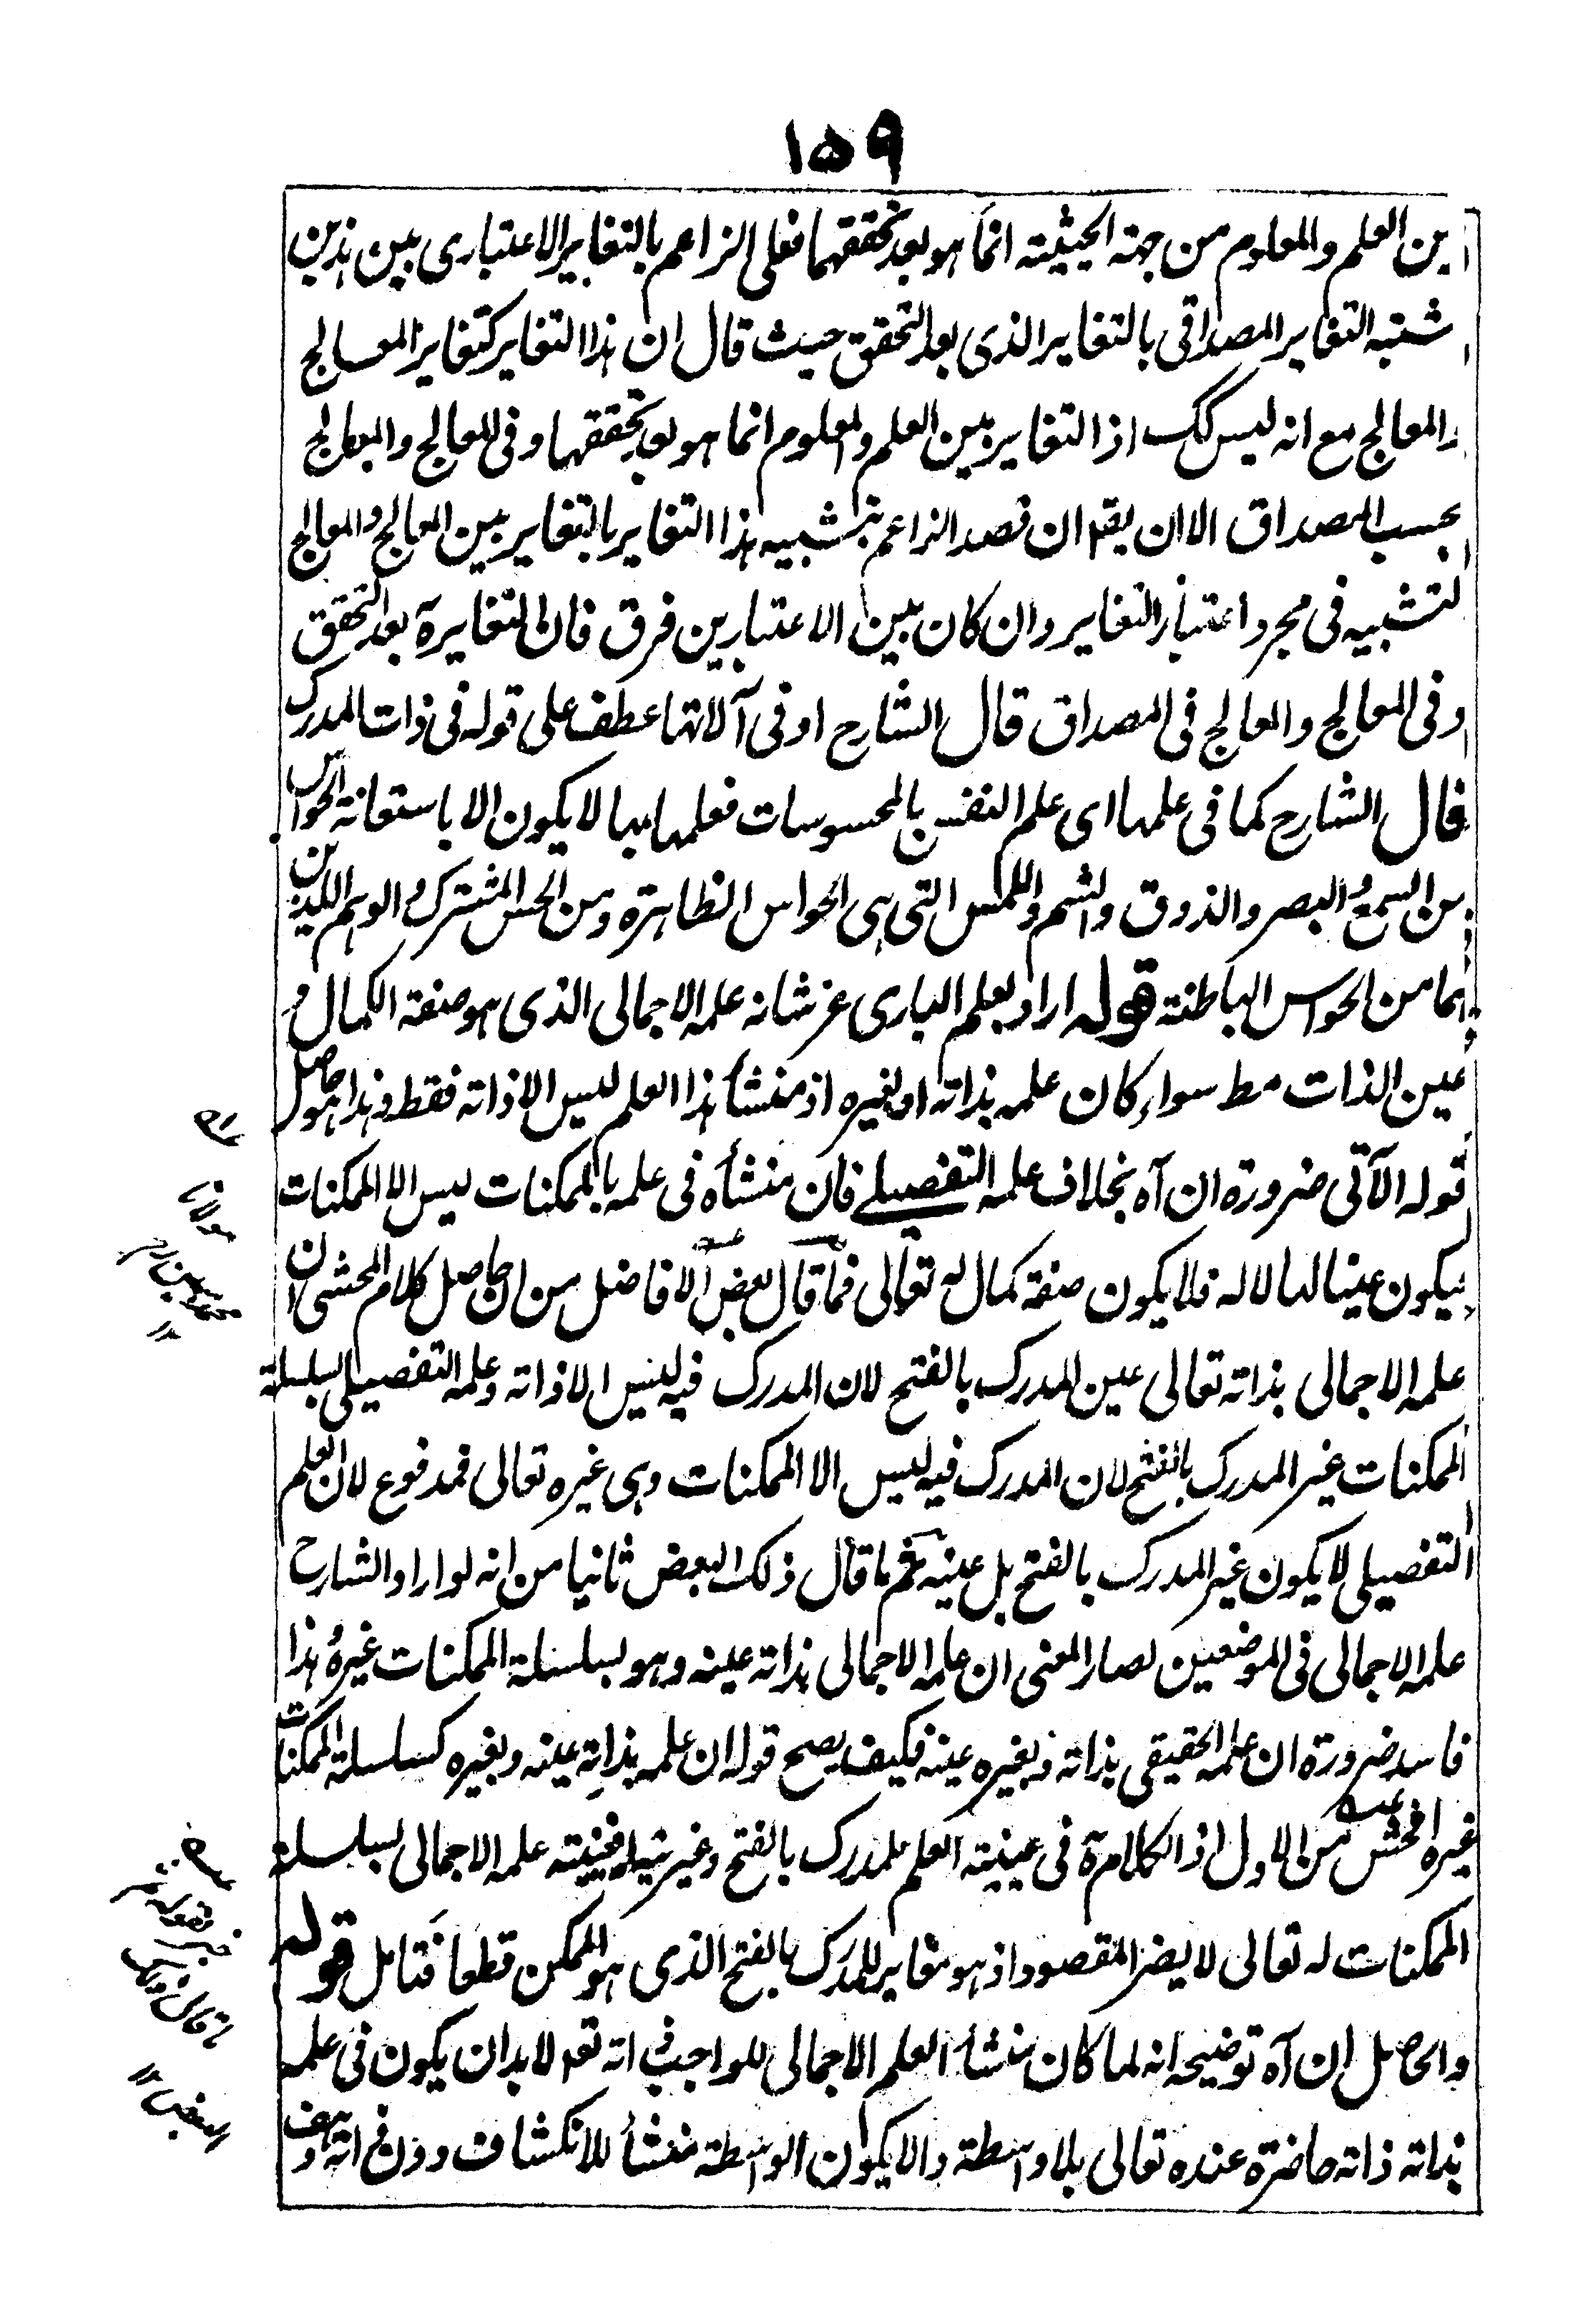 ١٥٩
بين العلم والمعلوم من جهة الحيثية انما هو بعد تحققهما فعلى الزاعم بالتغاير الاعتبارى بين هذين
شتبه التغاير المصداقى بالتغاير الذى بعد التحقق حيث قال ان هذا التغاير كتغاير المعالج
والمعالج مع انه ليس كك اذ التغاير بين العلم والمعلوم انما هو بعد تحققهما وفى المعالج والمعالج
بحسب المصداق الا ان يقم ان قصد الزاعم بتشبيه هذا التغاير بالتغاير بين المعالج والمعالج
لتشبيه فى مجرد اعتبار التغاير وان كان بين الاعتبارين فرق فان التغاير ثمة بعد التحقق
وفى المعالج والمعالج فى المصداق قال الشارح او فى آلاتها عطف على قوله فى ذات المدرك
قال الشارح كما فى علمها اى علم النفس بالمحسوسات فعلمها بها لا يكون الا باستعانة الحواس
من السمع والبصر والذوق والشم واللمس التى هى الحواس الظاهرة ومن الحس المشترك والوهم اللذين
هما من الحواس الباطنة قوله اراد بعلم البارى عز شانه علمه الاجمالى الذى هو صفة الكمال و
عين الذات مط سواء كان علمه بذاته او بغيره اذ منشأ هذا العلم ليس الا ذاته فقط وهذا هو حاصل
قوله الآتى ضرورة ان آه بخلاف علمه التفصيلى فان منشأه فى علمه بالممكنات ليس الا الممكنات
فيكون عينا لها لا له فلا يكون صفة كمال له تعالى فما قال بعض الافاضل من ان حاصل كلام المحشى ان
علمه الاجمالى بذاته تعالى عين المدرك بالفتح لان المدرك فيه ليس الا ذاته وعلمه التفصيلى بسلسلة
الممكنات غير المدرك بالفتح لان المدرك فيه ليس الا الممكنات وهى غيره تعالى فمدفوع لان العلم
التفصيلى لا يكون غير المدرك بالفتح بل عينه ثم ما قال ذلك البعض ثانيا من انه لو اراد الشارح
علمه الاجمالى فى الموضعين لصار المعنى ان علمه الاجمالى بذاته عينه وهو بسلسلة الممكنات غيره وهذا
فاسد ضرورة ان علمه الحقيقى بذاته وبغيره عينه فكيف يصح قوله ان علمه بذاته عينه وبغيره كسلسلة الممكنات
غيره افحش من الاول اذ الكلام ثمة فى عينية العلم للمدرك بالفتح وغيريته له فعينية علمه الاجمالى بسلسلة
الممكنات له تعالى لا يضر المقصود اذ هو مغاير للمدرك بالفتح الذى هو الممكن قطعا فتامل قوله
والحاصل ان آه توضيحه انه لما كان منشأ العلم الاجمالى للواجب ذاته تعم لا بد ان يكون فى علمه
بذاته ذاته حاضرة عنده تعالى بلا واسطة والا يكون الواسطة منشأ للانكشاف دون ذاته وهف
مولانا
محمد مبين رح